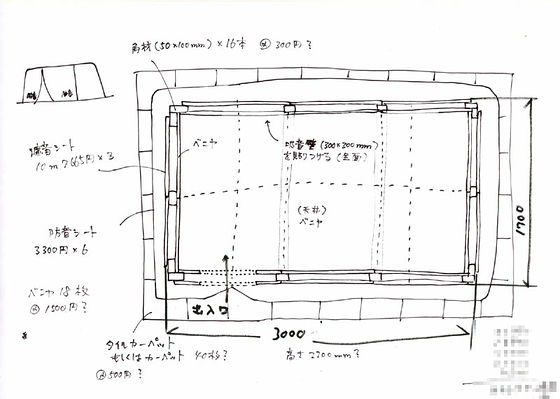 角材(50×100mm)×16本 @300円?
ベニヤ
吸音壁(300×200mm)
を貼りつける(全面?
遮音シート
10m 7665円×3
防音シート
3300円×6
(天井)
ベニヤ
1700
ベニヤ 18枚
@1500円?
出入口
3000
タイルカーペット
もしくはカーペット 40枚?
@500円?
高さ2200mm?